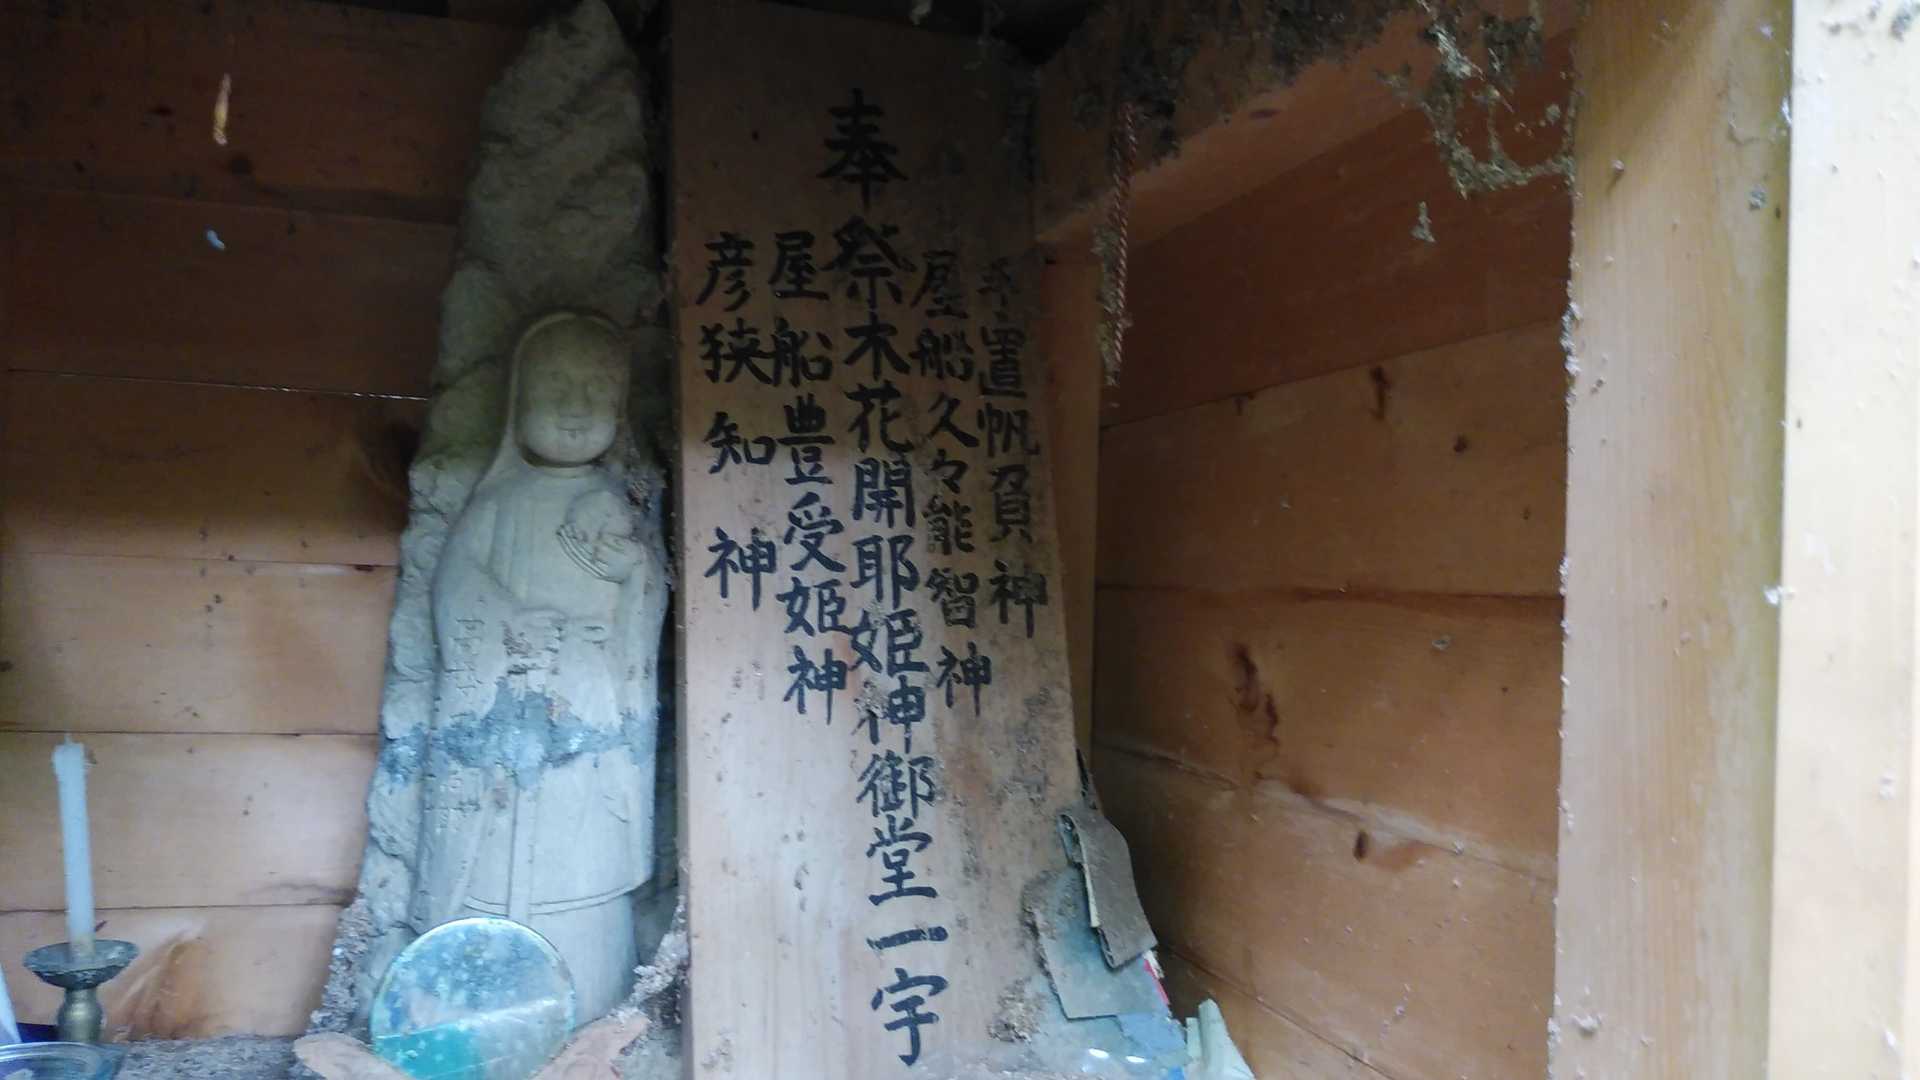 手置帆負神
屋船久々能智神
奉祭木花開耶姫神御堂一宇
屋船豊受姫神
彦狭知神